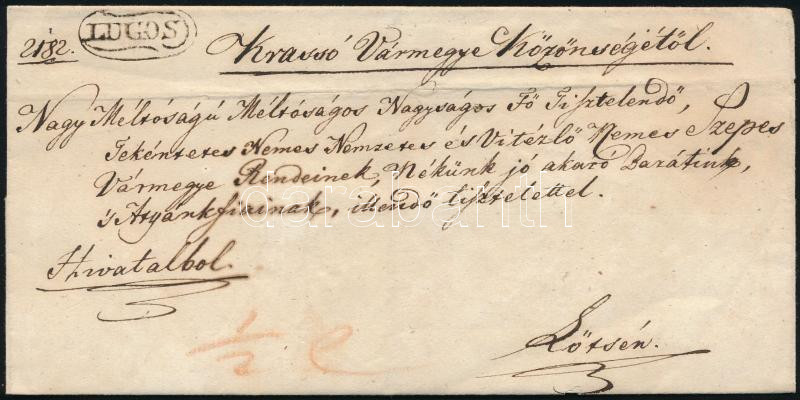 LUGOS
2182.
Krassó Vármegye Közönségétöl.
Nagy Méltóságú Méltóságos Nagyságos Fő Tisztelendő,
Tekéntetes Nemes Nemzetes és Vitézlő Nemes Szepes
Vármegye Rendeinek, Nékünk jó akaró Barátink,
's Atyánkfiainak, illendő tisztelettel.
darabanth
Hivatalbol.
Lötsén.